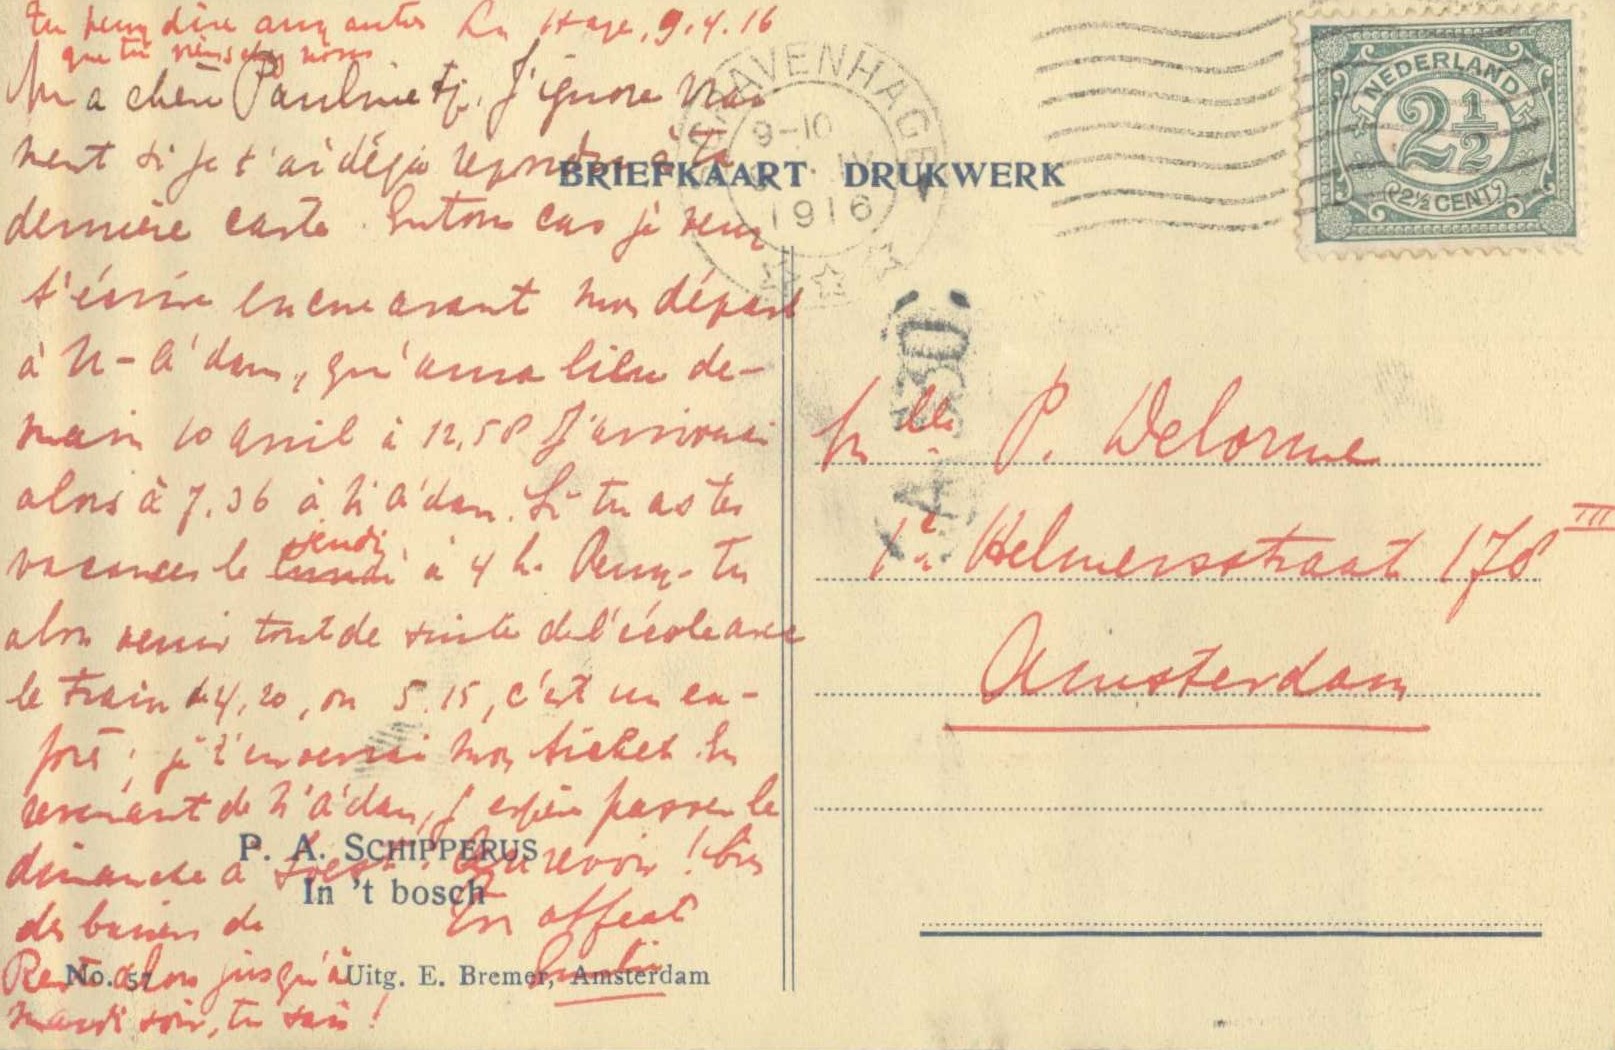 tu peux dire aux autres La Haye, 9.4.16
que tu viens chez nous
Ma chère Paulinetj. J'ignore vrai
ment si je t'ai déjà repondu à ta
dernière carte. Entous cas je veux
t'écrire encore avant mon départ
à N-A'dam, qu'aura lieu de-
main 10 avril à 12.58 J'arriverai
alors à 7.36 à N'A'dam. Si tu as tes
vacances le lundi jeudi à 4 h. Peux-tu
alors venir tout de suite de l'école avec
le train de 4,20, ou 5.15, c'est un ex-
près; je t'enverrai mon ticket. En
revenant de N'A'dam, j'espère passer le
dimanche à Soest. Au revoir! bien
des baisers de
Reste alors jusqu'à
mardi soir, tu sais!
BRIEFKAART DRUKWERK
P. A. SCHIPPERUS
In 't bosch
No. 57 Uitg. E. Bremer, Amsterdam
'S GRAVENHAGE
9-10
9 IV
1916
NEDERLAND
2½
2½ CENT
Mlle P. Delorme
1e Helmersstraat 178 III
Amsterdam